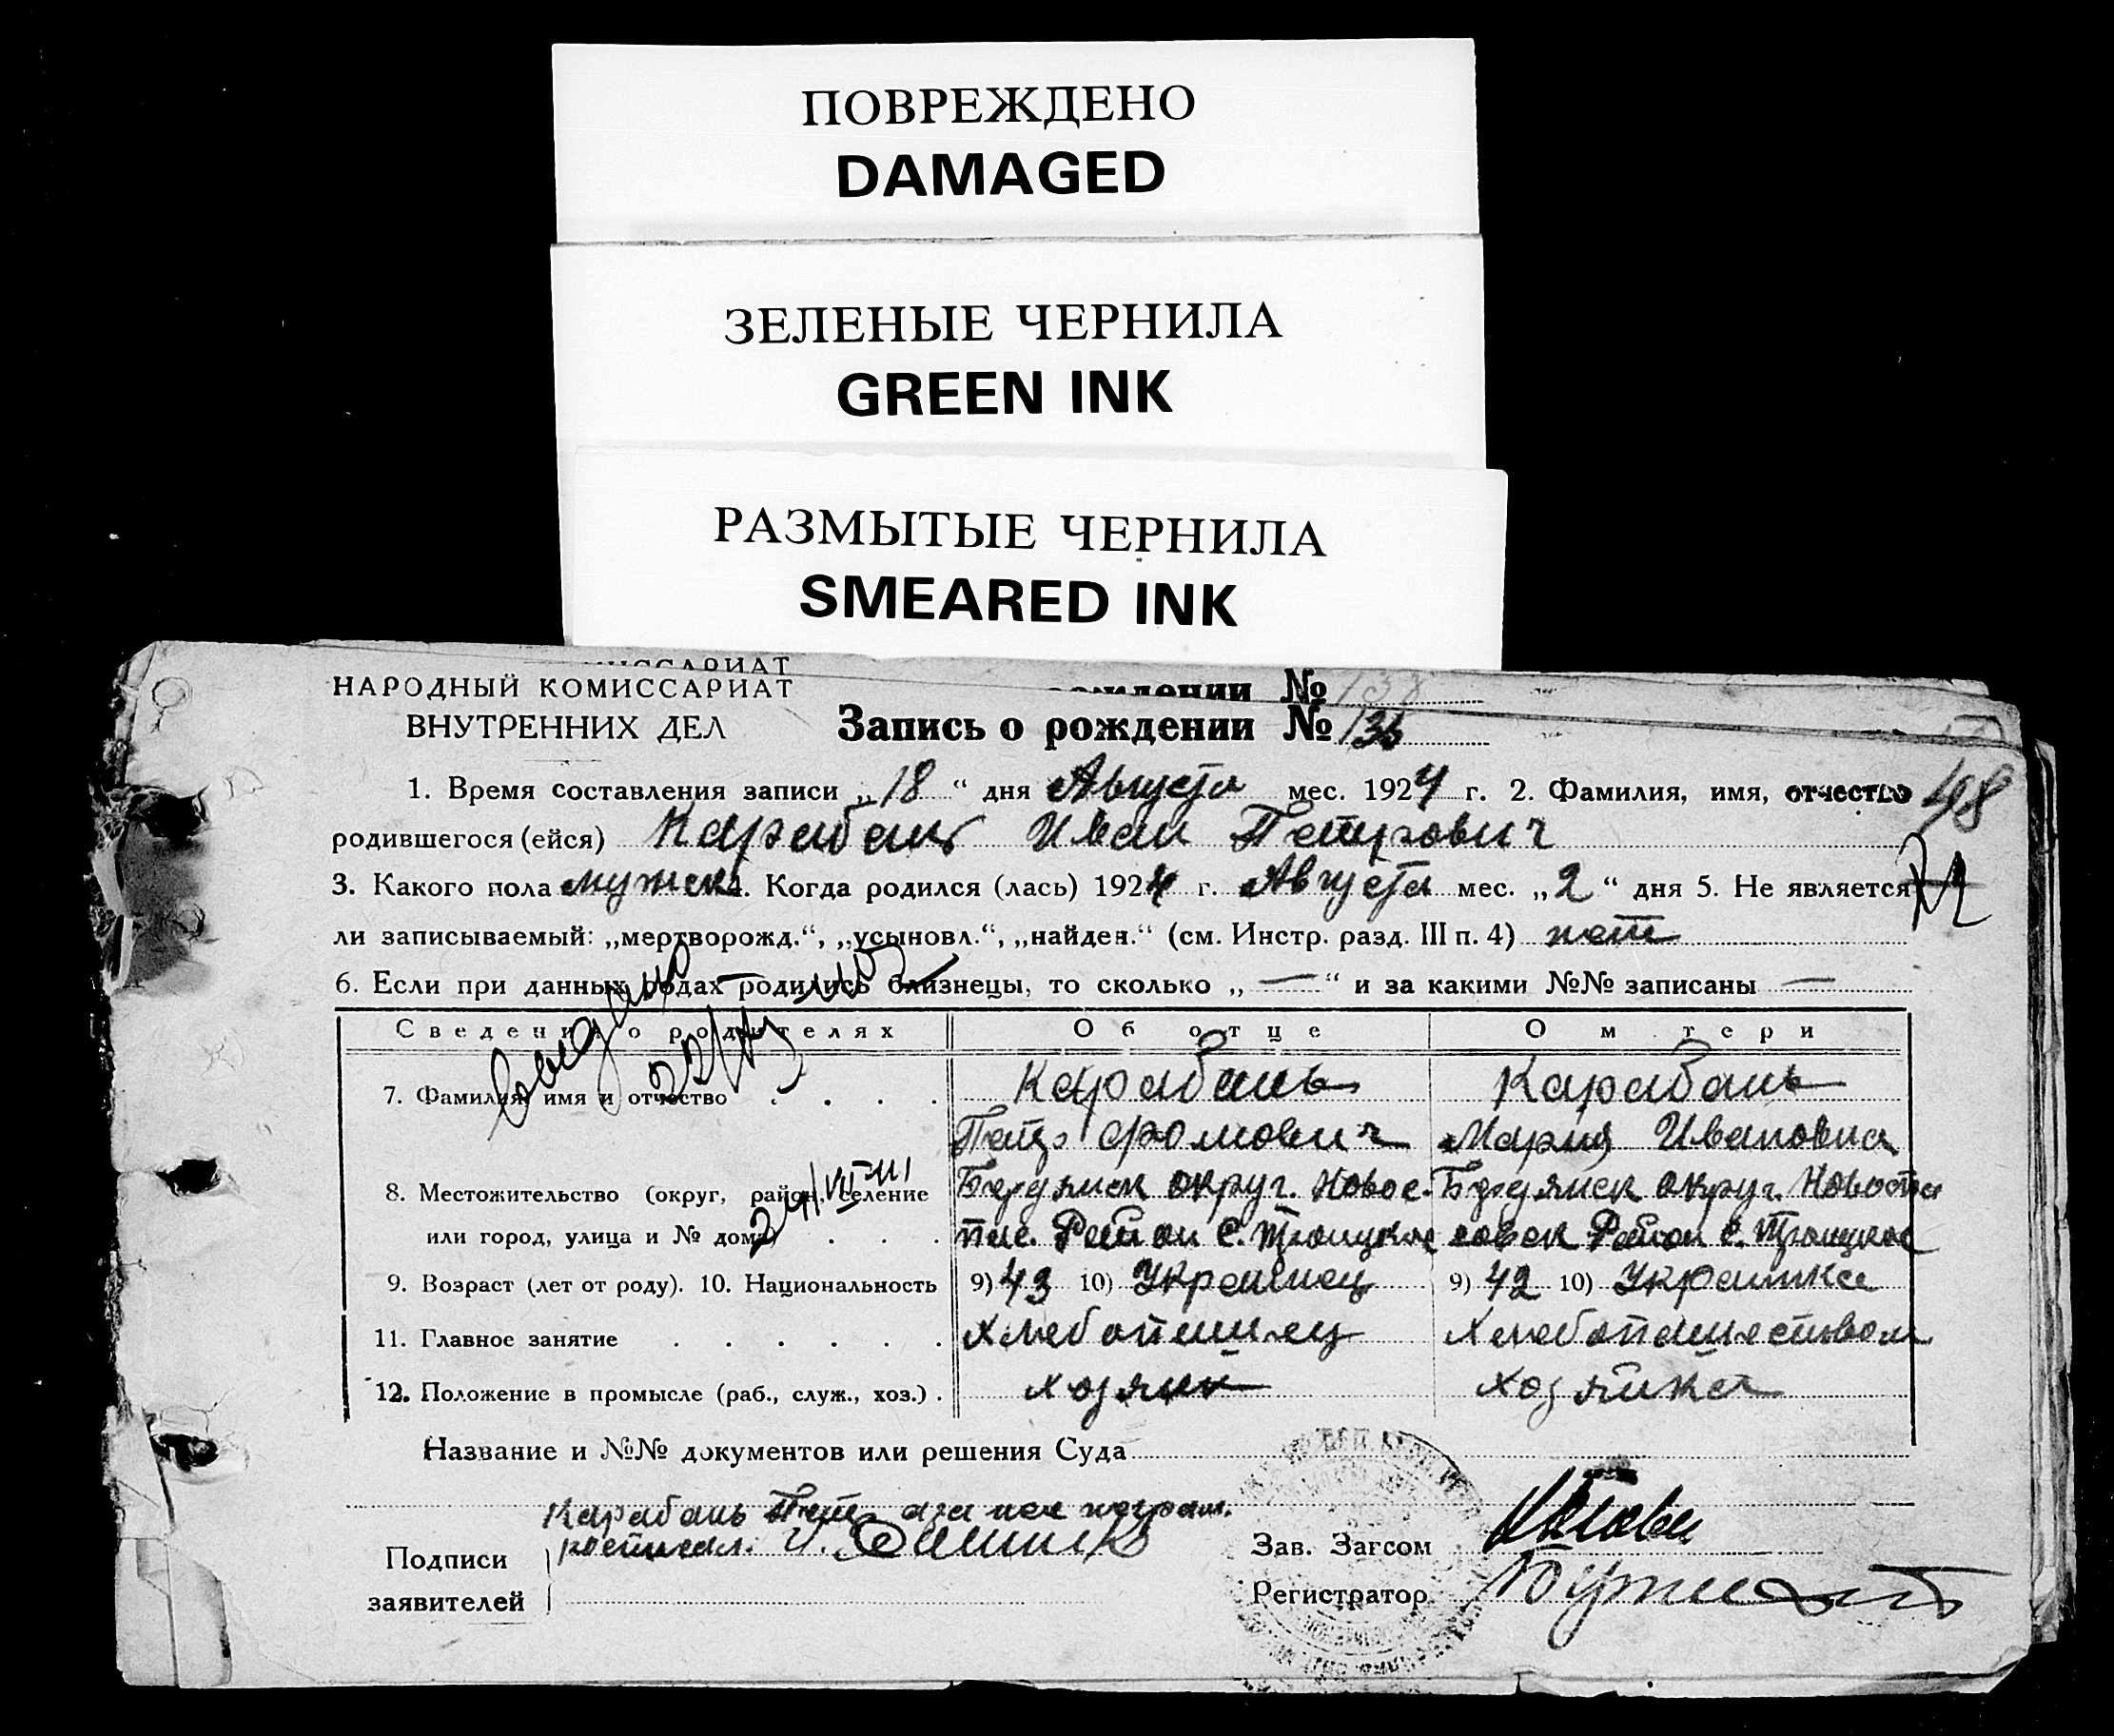 ПОВРЕЖДЕНО
DAMAGED
ЗЕЛЕНЫЕ ЧЕРНИЛА
GREEN INK
РАЗМЫТЫЕ ЧЕРНИЛА
SMEARED INK
НАРОДНЫЙ КОМИССАРИАТ
ВНУТРЕННИХ ДЕЛ
Запись о рождении №
1. Время составления записи „18“ дня Августа мес. 1924 г. 2. Фамилия, имя, отчество
родившегося (ейся) Карабань Иван Петрович
498
3. Какого пола мужск 4. Когда родился (лась) 1924 г. Августа мес. „2“ дня 5. Не является
ли записываемый: „мертворожд.“, „усыновл.“, „найден.“ (см. Инстр. разд. III п. 4) нет
6. Если при данных родах родились близнецы, то сколько „—“ и за какими №№ записаны —
Сведения о родителях Об отце О м тери
7. Фамилия, имя и отчество . . . . Карабань Карабань
Петр Фомович Мария Ивановна
8. Местожительство (округ, район, селение Бердянск округ. Новос- Бердянск округ. Новоспа
или город, улица и № дома) . . . пас. Район с. Троицкое совск Район с. Троицкое
9. Возраст (лет от роду). 10. Национальность 9) 43 10) Украинец 9) 42 10) Украинка
11. Главное занятие . . . . . . Хлебопашец Хлебопашеством
12. Положение в промысле (раб., служ., хоз.) . хозяин хозяйка
Название и №№ документов или решения Суда
Карабань Пет. а за нея неграм.
Подписи заявителей
Зав. Загсом
Регистратор